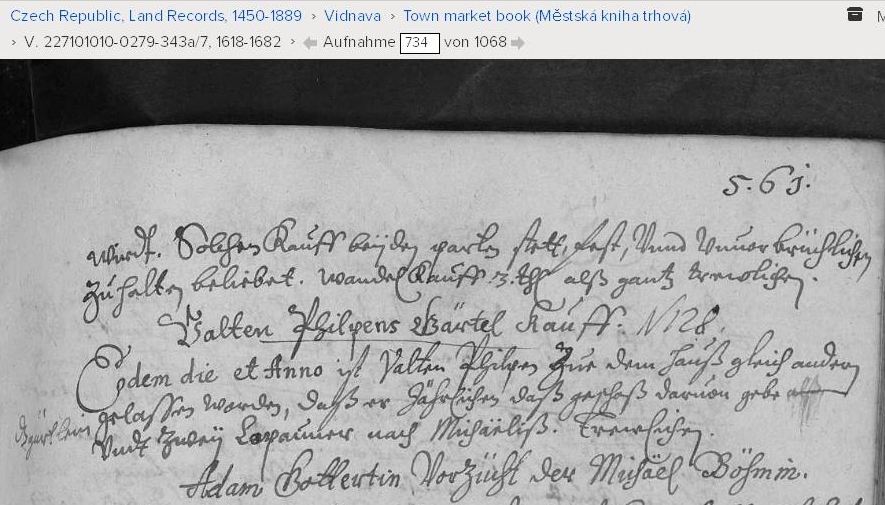 Czech Republic, Land Records, 1450-1889 › Vidnava › Town market book (Městská kniha trhová)
› V. 227101010-0279-343a/7, 1618-1682 › Aufnahme 734 von 1068
5.6j.
wirdt. Solchen Kauff beÿden parten stett, fest, Vnnd Vnuorbrüchlichen
Zu halten beliebet. wandel Kauff .3. thl alß gantz trewlichen.
Valten Philpens Gärtel Kauff. N128.
Eodem die et Anno ist Valten Philpen Zue dem hauß gleich andern
gelassen worden, daß er Jährlichen daß geschoß daruon gebe
Vndt Zweÿ nach Michäeliß. Trewlichen.
Adam Vorzücht der Michäel Böhmin.